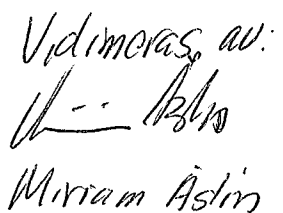 Vidimeras av:
Miriam Åslin